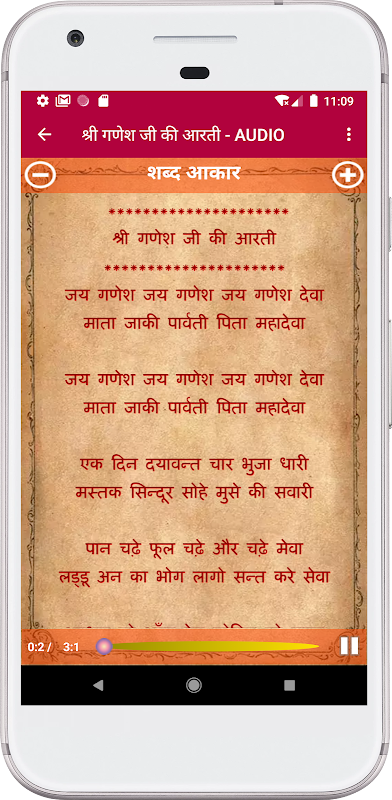 11:09
श्री गणेश जी की आरती - AUDIO
शब्द आकार
********************
श्री गणेश जी की आरती
********************
जय गणेश जय गणेश जय गणेश देवा
माता जाकी पार्वती पिता महादेवा
जय गणेश जय गणेश जय गणेश देवा
माता जाकी पार्वती पिता महादेवा
एक दिन दयावन्त चार भुजा धारी
मस्तक सिन्दूर सोहे मुसे की सवारी
पान चढ़े फूल चढ़े और चढ़े मेवा
लड्डू अन का भोग लागो सन्त करे सेवा
0:2 / 3:1